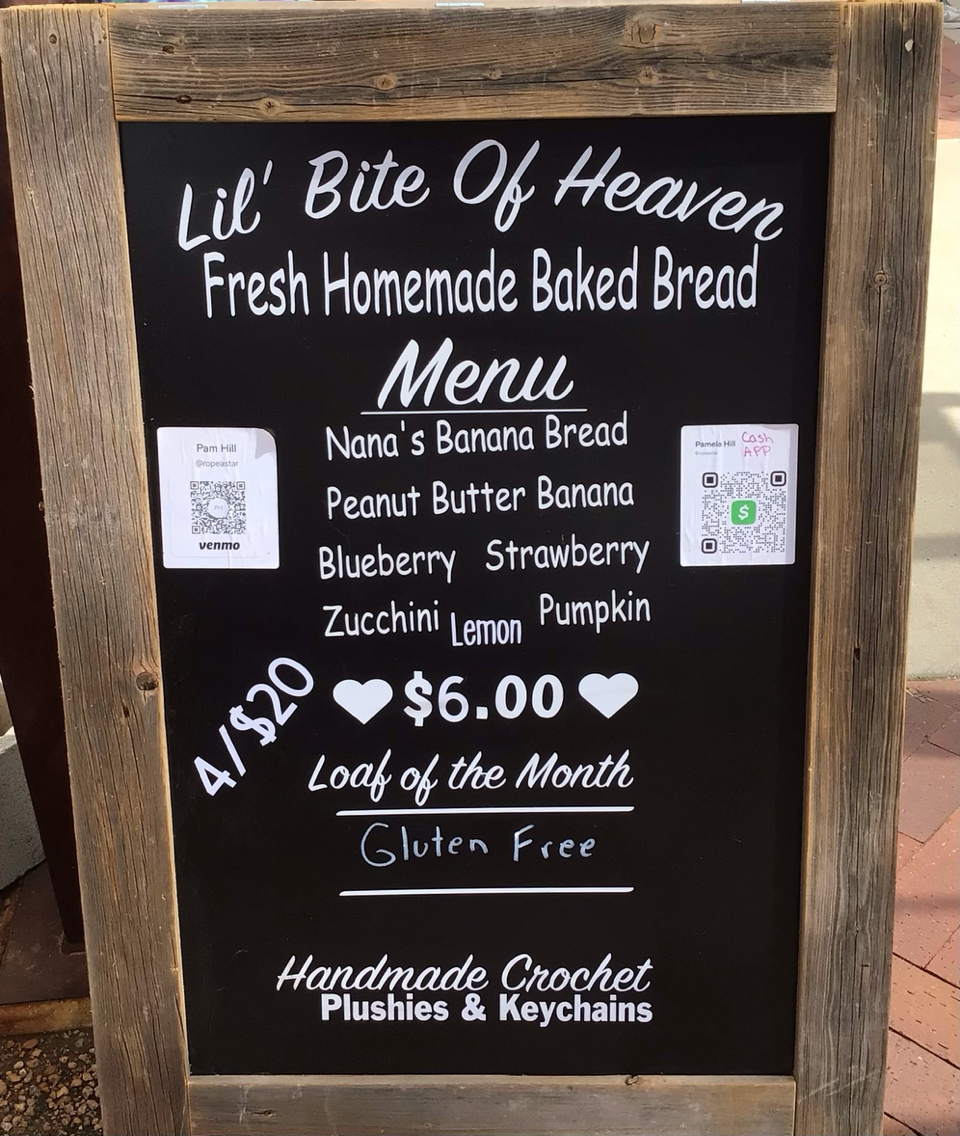 Lil' Bite Of Heaven
Fresh Homemade Baked Bread
Menu
Nana's Banana Bread
Pam Hill
@ropeastar
PH
venmo
Pamela Hill Cash
APP
$
Peanut Butter Banana
Blueberry Strawberry
Zucchini Lemon Pumpkin
$6.00
4/$20
Loaf of the Month
Gluten Free
Handmade Crochet
Plushies & Keychains